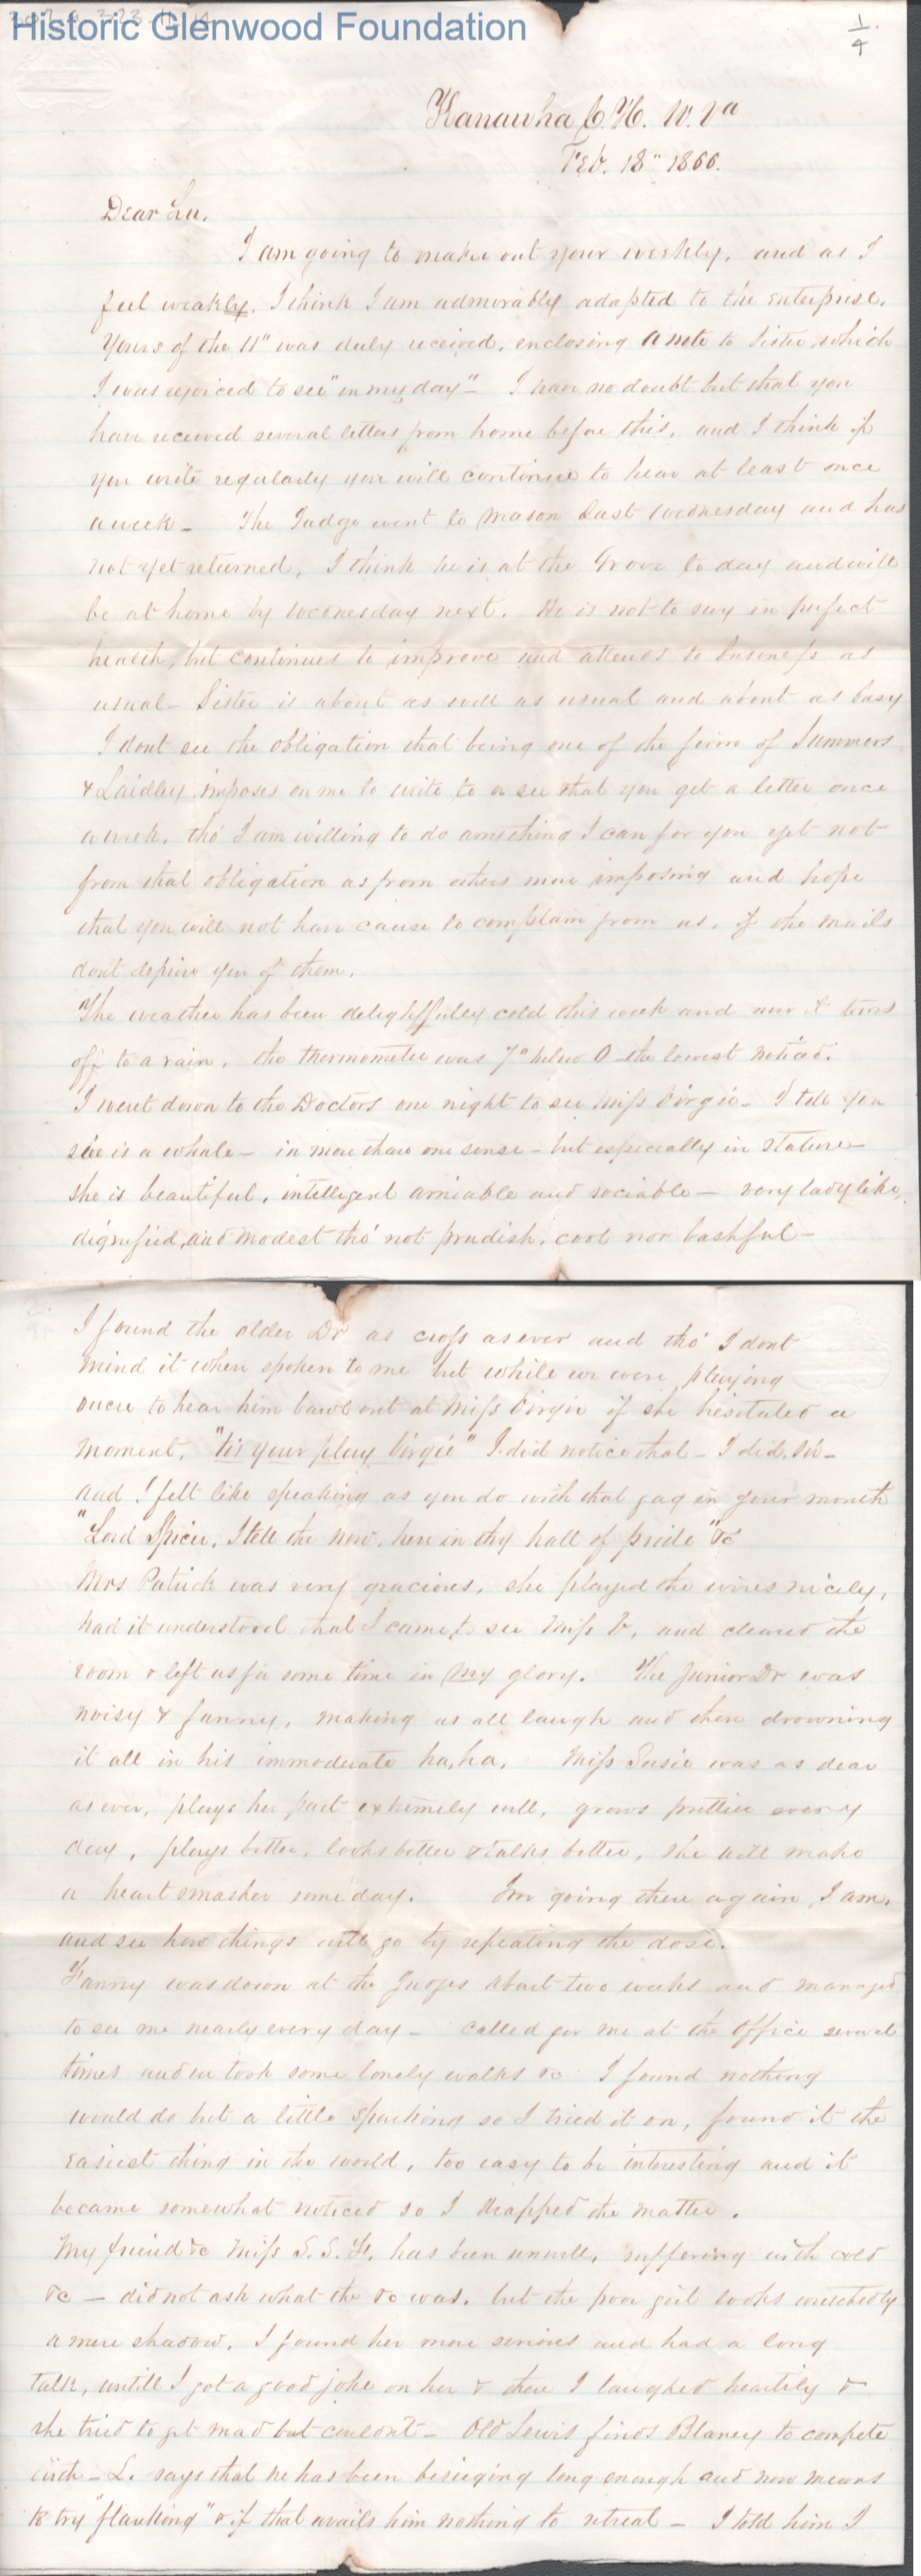 Historic Glenwood Foundation
1/4
Kanawha C.H. W. Va
Feb. 18" 1866.
Dear Lu,
I am going to make out your weekly, and as I
feel weakly, I think I am admirably adapted to the enterprise.
Yours of the 11" was duly received, enclosing a note to Sister, which
I was rejoiced to see "in my day" - I have no doubt but that you
have received several letters from home before this, and I think if
you write regularly you will continue to hear at least once
a week - The Judge went to Mason last Wednesday and has
not yet returned, I think he is at the Grove to day and will
be at home by Wednesday next. He is not to say in perfect
health, but continues to improve and attends to business as
usual - Sister is about as well as usual and about as busy
I dont see the obligation that being one of the firm of Summers
& Laidley imposes on me to write to or see that you get a letter once
a week, tho' I am willing to do anything I can for you yet not
from that obligation as from others more imposing and hope
that you will not have cause to complain from us, if the mails
dont deprive you of them.
The weather has been delightfully cold this week and now it turns
off to a rain, the thermometer was 7° below 0 the lowest noticed.
I went down to the Doctors one night to see Miss Virgie - I tell you
she is a whale - in more than one sense - but especially in stature
she is beautiful, intelligent amiable and sociable - very lady like,
dignified, and modest tho' not prudish, cool nor bashful -
I found the older Dr as cross as ever and tho' I dont
mind it when spoken to me but while we were playing
eucre to hear him bawl out at Miss Virgie if she hesitated a
moment, "tis your play Virgie" I did notice that - I did, Sir -
and I felt like speaking as you do with that gag in your mouth
"Lord I tell the now, here in thy hall of pride" &c
Mrs Patrick was very gracious, she played the wires nicely,
had it understood that I came to see Miss V, and cleared the
room & left us for some time in my glory. The Junior Dr was
noisy & funny, making us all laugh and then drowning
it all in his immoderate ha, ha, Miss Susie was as dear
as ever, plays her part extremely well, grows prettier every
day, plays better, looks better & talks better, she will make
a heart smasher some day. Im going there again, I am,
and see how things will go by repeating the dose.
Fanny was down at the Judges about two weeks and managed
to see me nearly every day - called for me at the office several
times and we took some lonely walks &c I found nothing
would do but a little sparking so I tried it on, found it the
easiest thing in the world, too easy to be interesting and it
became somewhat noticed so I dropped the matter.
My friend &c Miss S. S. has been unwell, suffering with cold
&c - did not ask what the &c was, but the poor girl looks wretchedly
a mere shadow, I found her more serious and had a long
talk, untill I got a good joke on her & then I laughed heartily &
she tried to get mad but couldn't - Old Lewis finds Blaney to compete
with - L. says that he has been besieging long enough and now means
to try "flanking" & if that avails him nothing to retreat - I told him I